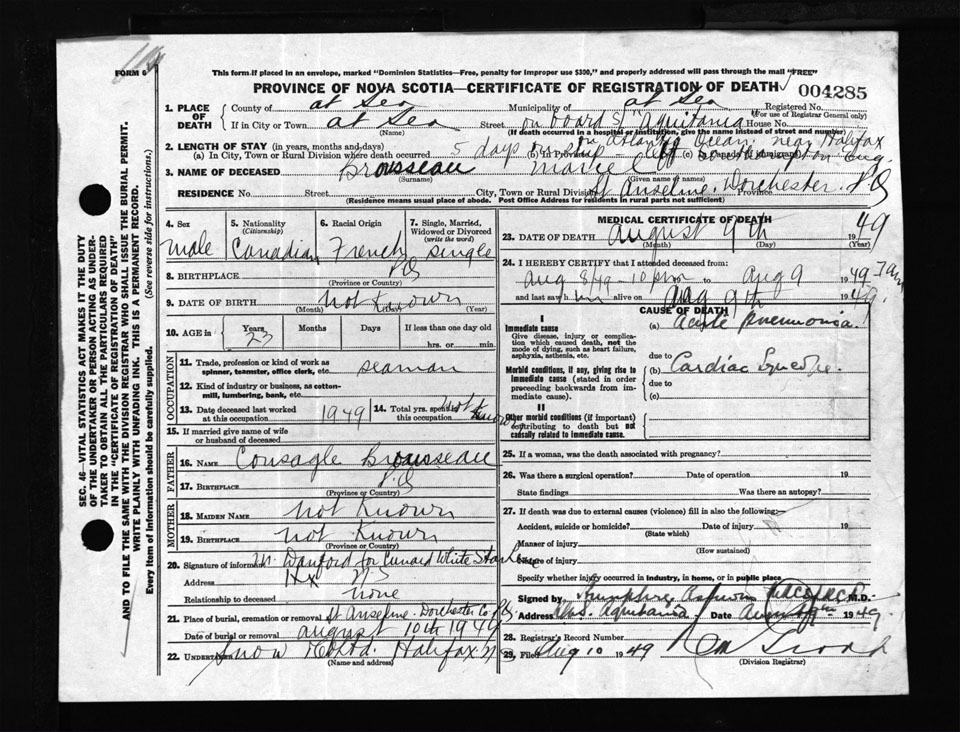 FORM 6
This form if placed in an envelope, marked "Dominion Statistics—Free, penalty for improper use $300," and properly addressed will pass through the mail "FREE"
PROVINCE OF NOVA SCOTIA—CERTIFICATE OF REGISTRATION OF DEATH
004285
1. PLACE OF DEATH
County of at Sea Municipality of at Sea Registered No.
(For use of Registrar General only)
If in City or Town at Sea Street on board S "Aquitania" House No.
(Name) (If death occurred in a hospital or institution, give the name instead of street and number)
in Atlantic Ocean near Halifax
2. LENGTH OF STAY (in years, months and days)
(a) In City, Town or Rural Division where death occurred 5 days on ship (b) In Province left (c) Southampton Aug.
3. NAME OF DECEASED Brousseau Marie C
(Surname) (Given name or names)
RESIDENCE No. Street City, Town or Rural Division St Anselme, Dorchester Province P.Q
(Residence means usual place of abode. Post Office Address for residents in rural parts not sufficient)
4. Sex
male
5. Nationality
(Citizenship)
Canadian
6. Racial Origin
French
7. Single, Married, Widowed or Divorced
(write the word)
single
8. BIRTHPLACE P.Q
(Province or Country)
9. DATE OF BIRTH not known
(Month) (Year)
10. AGE in Years Months Days If less than one day old
23 hrs. or min.
OCCUPATION
11. Trade, profession or kind of work as spinner, teamster, office clerk, etc. seaman
12. Kind of industry or business, as cotton-mill, lumbering, bank, etc.
13. Date deceased last worked at this occupation 1949
14. Total yrs. spent in this occupation not known
15. If married give name of wife or husband of deceased
FATHER
16. NAME Consagle Brousseau
17. BIRTHPLACE P.Q
(Province or Country)
MOTHER
18. MAIDEN NAME not known
19. BIRTHPLACE not known
(Province or Country)
20. Signature of informant Danford for Cunard White Star Line
Address Hx N S
Relationship to deceased none
21. Place of burial, cremation or removal St Anselme Dorchester Co P.Q
Date of burial or removal August 10th 1949
22. UNDERTAKER Snow & Co Ltd. Halifax N S
(Name and address)
MEDICAL CERTIFICATE OF DEATH
23. DATE OF DEATH August 9th 1949
(Month) (Day) (Year)
24. I HEREBY CERTIFY that I attended deceased from:
Aug 8/49 - 10 pm to Aug 9 1949 7 am
and last saw him alive on Aug 9th 1949
CAUSE OF DEATH
I
Immediate cause
Give disease, injury or complication which caused death, not the mode of dying, such as heart failure, asphyxia, asthenia, etc.
(a) Acute pneumonia.
due to
Morbid conditions, if any, giving rise to immediate cause (stated in order proceeding backwards from immediate cause).
(b) Cardiac Syncope.
due to
(c)
II
Other morbid conditions (if important) contributing to death but not causally related to immediate cause.
25. If a woman, was the death associated with pregnancy?
26. Was there a surgical operation? Date of operation 19
State findings Was there an autopsy?
27. If death was due to external causes (violence) fill in also the following:—
Accident, suicide or homicide? Date of injury 19
(State which)
Manner of injury
(How sustained)
Nature of injury
Specify whether injury occurred in industry, in home, or in public place
Signed by Humphrey M.D.
Address Aquitania Date August 9th 1949
28. Registrar's Record Number
29. Filed Aug 10 1949
(Division Registrar)
SEC. 46—VITAL STATISTICS ACT MAKES IT THE DUTY OF THE UNDERTAKER OR PERSON ACTING AS UNDERTAKER TO OBTAIN ALL THE PARTICULARS REQUIRED IN THE "CERTIFICATE OF REGISTRATION OF DEATH"
AND TO FILE THE SAME WITH THE DIVISION REGISTRAR WHO SHALL ISSUE THE BURIAL PERMIT.
WRITE PLAINLY WITH UNFADING INK. THIS IS A PERMANENT RECORD.
Every item of information should be carefully supplied. (See reverse side for instructions.)